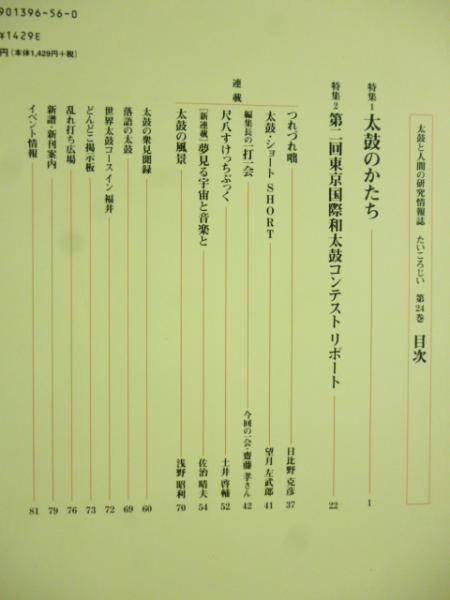 太鼓と人間の研究情報誌 たいころじい 第24巻 目次
特集1 太鼓のかたち 1
特集2 第二回東京国際和太鼓コンテスト リポート 22
連載
つれづれ咄 日比野 克彦 37
太鼓・ショート SHORT 望月 左武郎 41
編集長の一打一会 今回の一会・齋藤 孝さん 42
尺八すけっちぶっく 土井 啓輔 52
［新連載］夢見る宇宙と音楽と 佐治 晴夫 54
太鼓の風景 浅野 昭利 70
太鼓の衆見聞録 60
落語の太鼓 69
世界太鼓コース イン 福井 72
どんどこ掲示板 73
乱れ打ち広場 76
新譜・新刊案内 79
イベント情報 81
901396-56-0
¥1429E
円（本体1,429円+税）